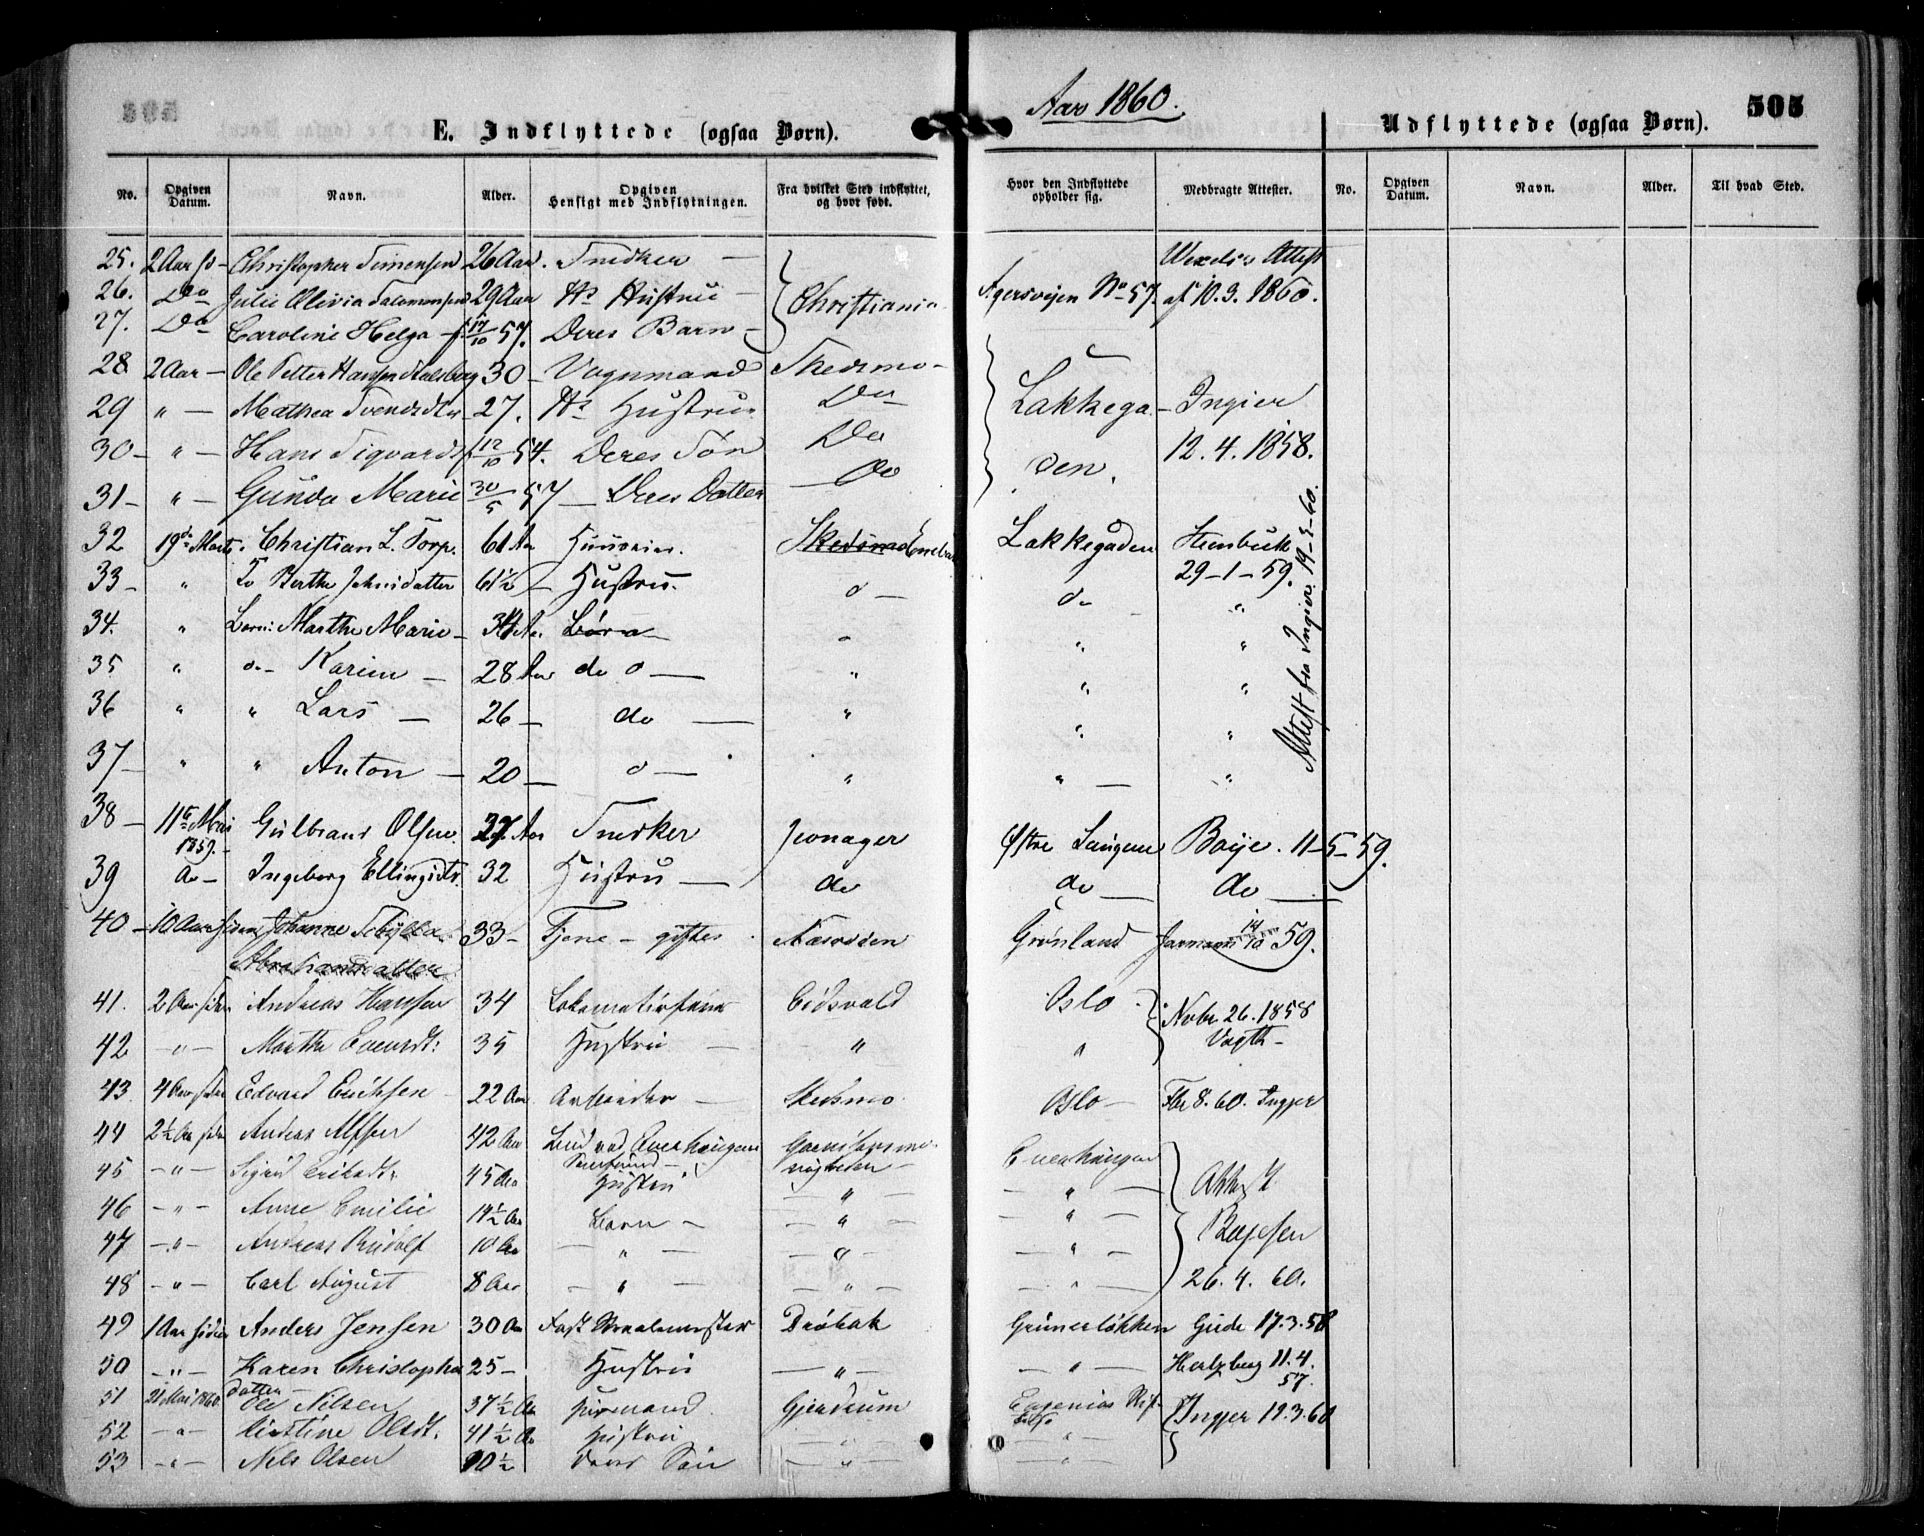 Aar 1860.
505
E. Indflyttede (ogsaa Børn).
Udflyttede (ogsaa Børn).
No. Opgiven Datum. Navn. Alder. Opgiven Hensigt med Indflytningen. Fra hvilket Sted indflyttet, og hvor født. Hvor den Indflyttede opholder sig. Medbragte Attester. No. Opgiven Datum. Navn. Alder. Til hvad Sted.
25. 2 Aar sd - Christopher Simensen 26 Aar. Snedker - Christiania Agersveien No 57. Attest af 10.3.1860.
26. Do Julie Olivia Salomonsen 29 Aar Hs Hustru -
27. Do Caroline Helga - f 17/10 57. Deres Barn -
28 2 Aar - Ole Petter Hansen 30 - Vognmand Skedsmo - Lakkegaden. Ingier 12.4.1858.
29 " - Mathea 27. Hs Hustru Do
30 - " - Hans Sigvard f 12/10 54. Deres Søn Do
31 - " - Gunda Marie 30/5 57 - Deres Datter Do
32 19de Marts. Christian L. Torp. 61 Aar Huuseier. Skedsmo Lakkegaden 29-1-59.
Attest fra Ingier 19-3-60.
33 - " Berthe Johnsdatter 61½ Hustru. d - do "
34. " Børn: Marthe Marie - 34 Aar Børn " "
35 " do - Karen - 28 Aar do " " "
36 " " Lars - 26 - do - " " "
37 - " " Anton - 20 - do - " " - "
38 - 11te Mai 1859. - Gulbrand Olsen. 27 Aar Snedker Jevnager Østre Boije. 11-5-59.
39 do - Ingeborg Ellingsdtr. 32 Hustru - do do - do -
40 - 10 Aar siden Johanne Abrahamsdatter 33 - Tjene - giftes. Næsodden Grønland 14/10 59.
41. 2 Aar siden Andreas Hansen 34 Eidsvold Oslo Novbr 26.1858 Vogth -
42 - " - Marthe 35 Hustru - " "
43. 4 Aar siden Edvard Erichsen 22 Aar Arbeider - Skedsmo. Oslo - Fbr 8.60. Ingjer
44 2½ Aar siden Anders 42 Aar
45 - " - Sigrid Eriksdt: 45 Aar Hustru - " - - " - Attest 26.4.60.
46 - " - Anne Emilie 14½ Aar Børn - - " - - " -
47 - " - Andreas Rudolf 10 Aar - " - - " - - " -
48 - " - Carl August 8 Aar - " - - " - - " -
49 1 Aar siden Anders Jensen 30 Aar Drøbak Grünerløkken Gude 17.3.58
50 - " - Karen Christophersdatter 25 - Hustru - " - - " - Hertzberg 11.4.57.
51 21 Mai 1860. Ole Nilsen 37½ Aar Huusmand Gjerdrum Eugenias Stiftelse Ingjer 19.3.60
52 - " - Christine Olsdt. 41½ Aar Hustru - " - - " -
53 - " - Nils Olsen 10½ Deres Søn - " - - " -